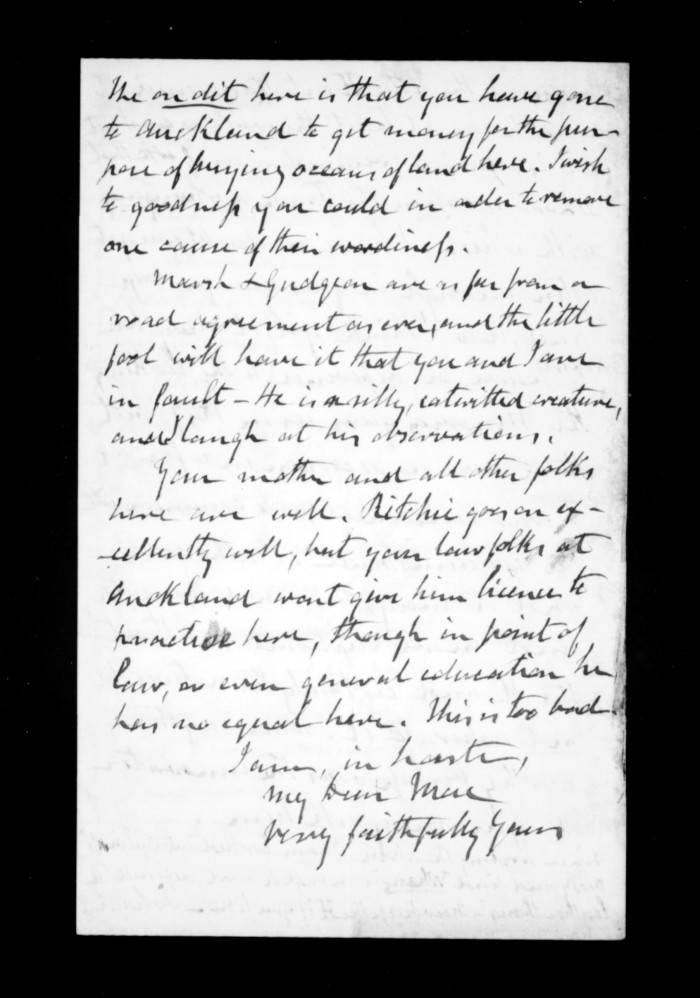 The on dit here is that you have gone
to Auckland to get money for the pur-
pose of buying oceans of land here. I wish
to goodness you could in order to remove
one cause of their wordiness.
Marsh & Gudgeon are as far from a
road agreement as ever, and the little
fool will have it that you and I are
in fault - He is a silly, catwitted creature,
and I laugh at his observations.
Your mother and all other folks
here are well. Ritchie goes on ex-
-cellently well, but your law folks at
Auckland wont give him licence to
practise here, though in point of
law, or even general education he
has no equal here. This is too bad
I am, in haste,
My Dear Mac
very faithfully Yours